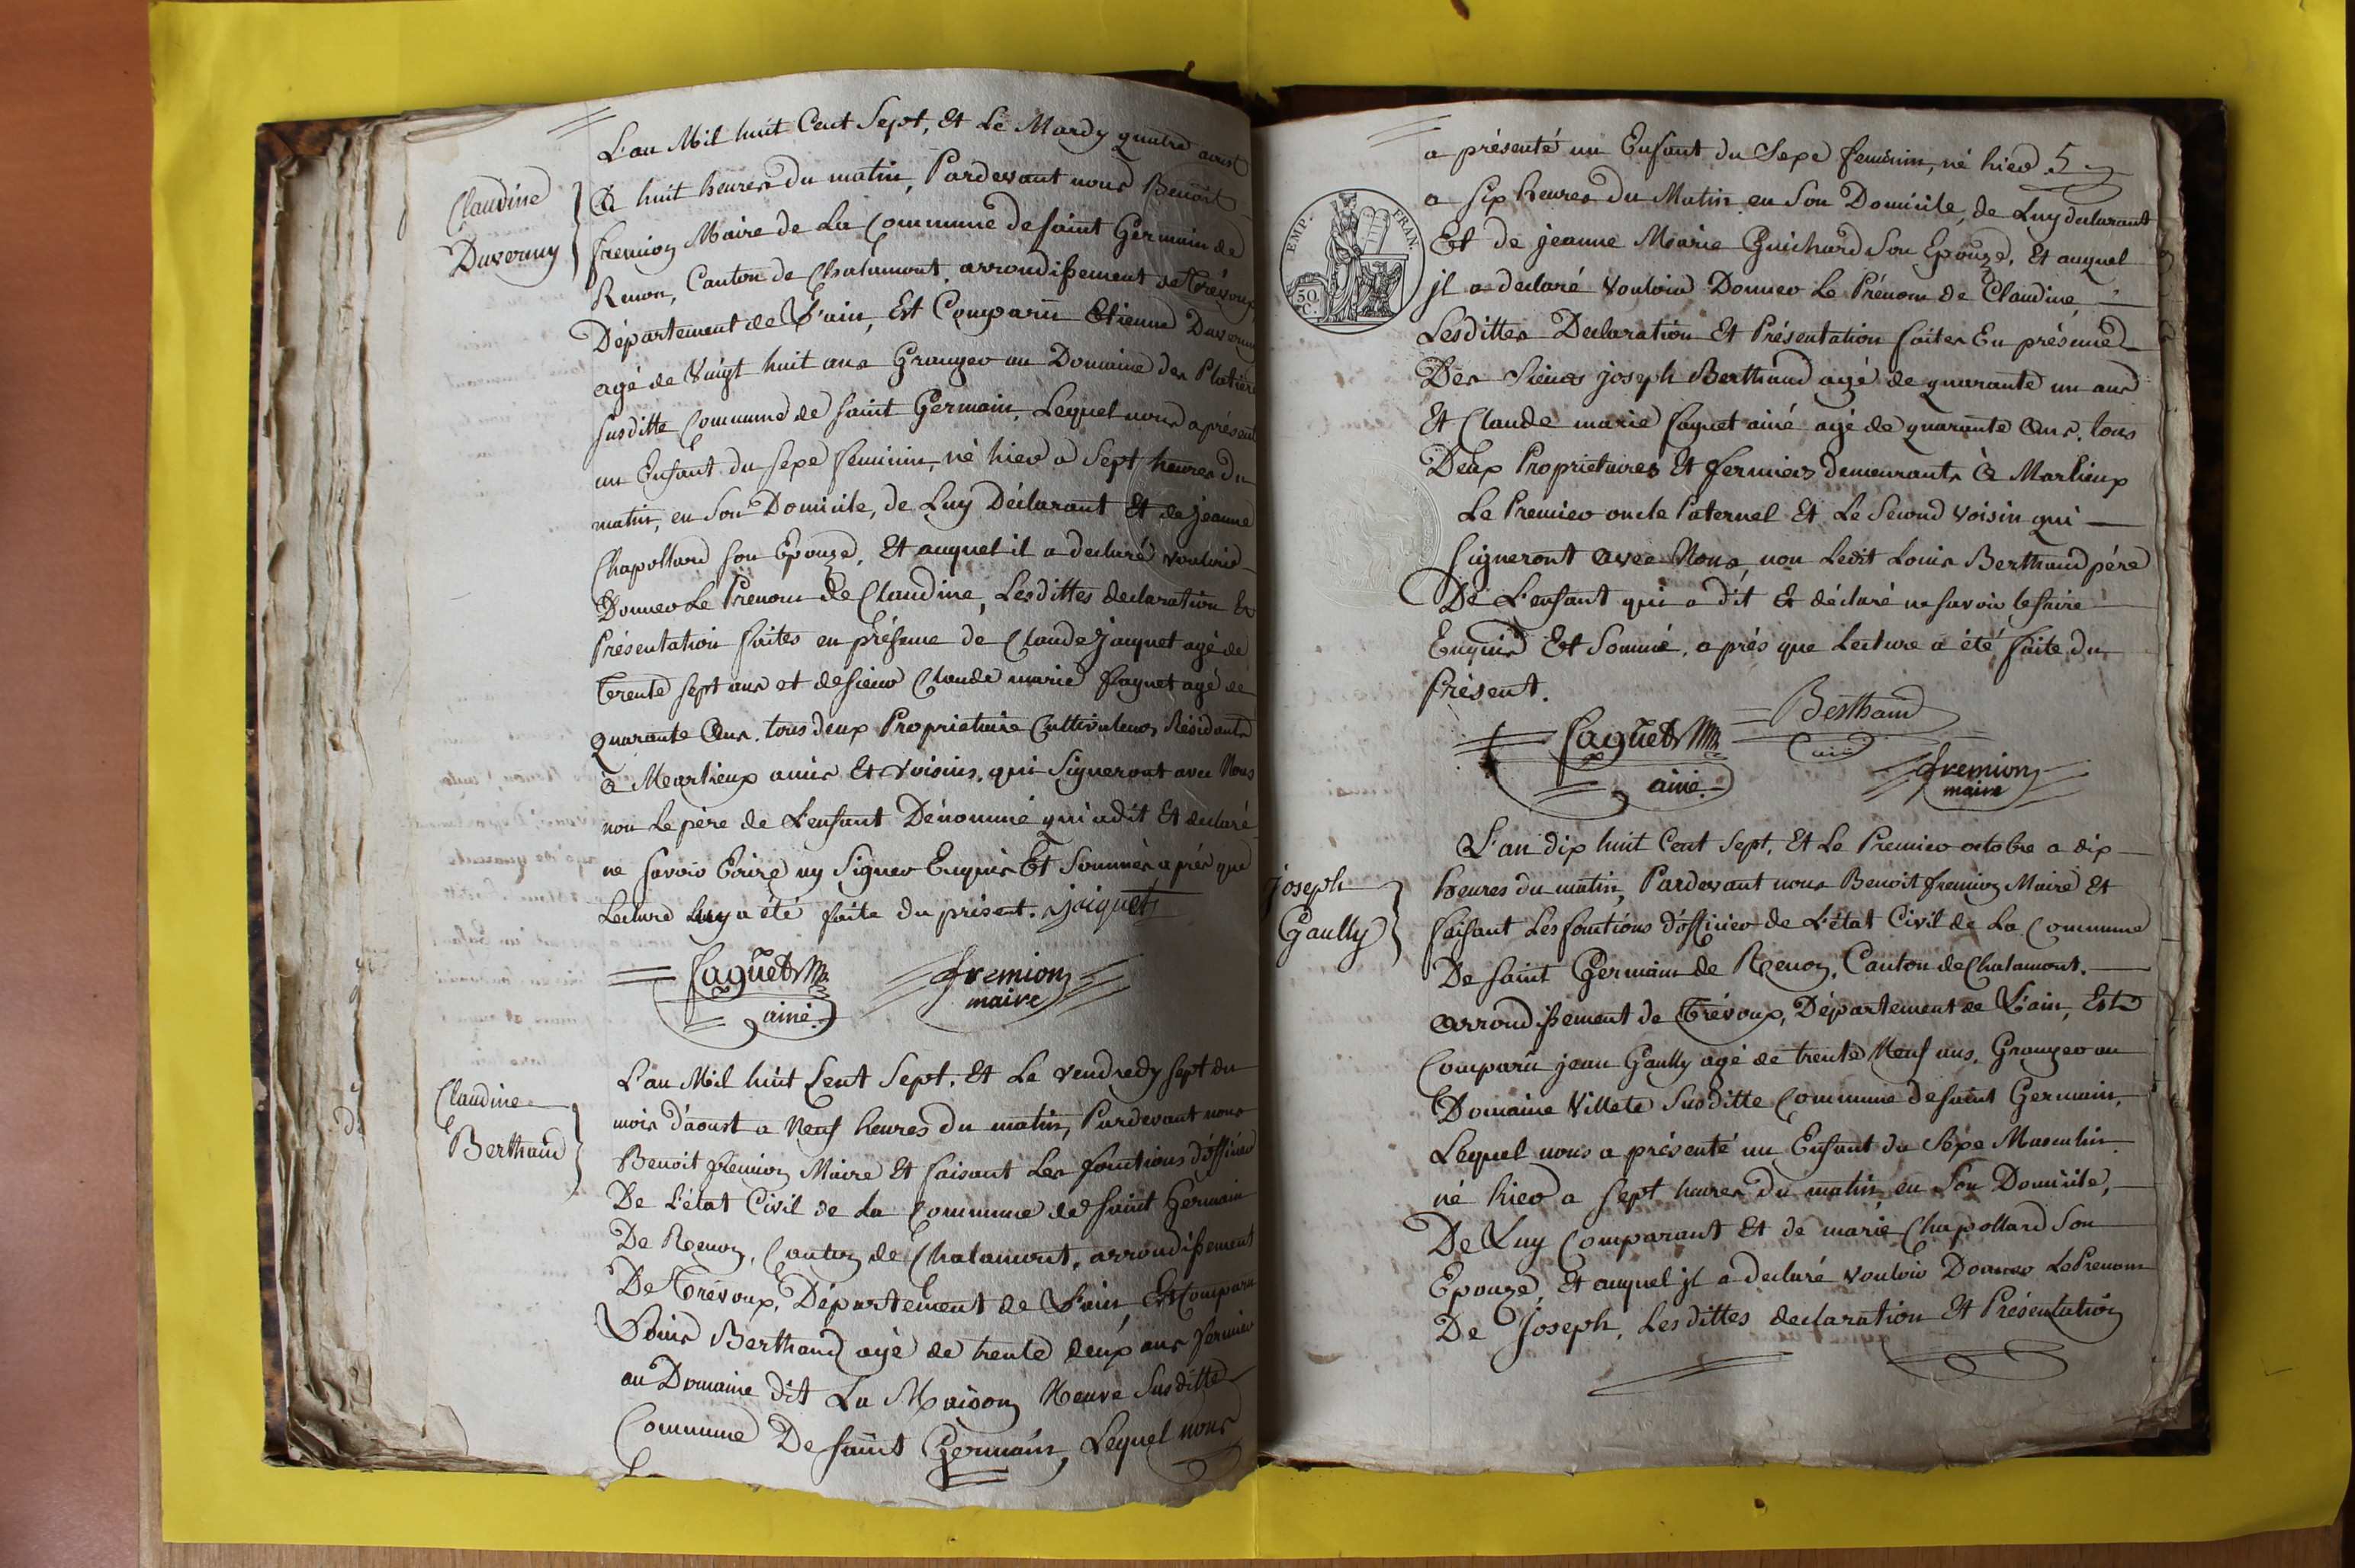 L'an Mil huit Cent Sept, Et Le Mardy quatre aout
Claudine
Duvernay
A huit heures du matin, Pardevant nous Benoit
fremion Maire de La Commune de saint Germain de
Renon, Canton de Chalamont, arrondissement de Trévoux
Département de L'ain, Est Comparu Etienne Duvernay
agé de Vuigt huit ans Granger au Domaine des Platières
susditte Commune de saint Germain, Lequel nous a présenté
un Enfant du sexe feminin, né hier a Sept heures du
matin, en Son Domicile, de Luy Déclarant Et de Jeanne
Chapolland son Epouze, Et auquel il a declaré vouloir
Donner Le Prenom de Claudine, Lesdittes declaration Et
Présentation faites en présence de Claude Jaquet agé de
Trente sept ans et de sieur Claude marie faguet agé de
quarante Ans, tous deux Proprietaire Cultivateurs Résidants
à Marlieux amis Et Voisins, qui Signeront avec Nous
non Le père de L'enfant Dénommé qui a dit Et declaré
ne savoir Ecrire ny Signer Enquis Et Sommés après que
Lecture Luy a été faite du présent. Jaiquet
faguet
ainé
fremion
maire
L'an Mil huit Cent Sept, Et Le Vendredy sept du
Claudine
Berthaud
mois d'aoust a Neuf heures du matin, Pardevant nous
Benoit fremion Maire Et faisant Les fonctions d'officier
De L'état Civil de La Commune de saint Germain
De Renon, Canton de Chalamont, arrondissement
De Trévoux, Département de L'ain, Est Comparu
Louis Berthaud agé de trente deux ans fermier
au Domaine dit La Maison Neuve Susditte
Commune De saint Germain, Lequel nous
a présenté un Enfant du Sexe feminin, né hier 5
a six heures du Matin en Son Domicile, de Luy declarant
Et de jeanne Marie Guichard Son Epouze, Et auquel
jl a declaré Vouloir Donner Le Prénom de Claudine
Lesdittes Declaration Et Présentation faites En présence
Des Sieurs joseph Berthaud agé de quarante un ans
Et Claude marie faguet ainé agé de quarante Ans, tous
Deux Proprietaires Et fermiers demeurants à Marlieux
Le Premier oncle Paternel Et Le Second Voisin qui
Signeront avec Nous, non Ledit Louis Berthaud père
De L'enfant qui a dit Et déclaré ne savoir le faire
Enquis Et Sommé, après que Lecture a été faite du
présent.
EMP. FRAN.
50 C.
Berthaud
faguet
ainé
fremion
maire
L'an dix huit Cent Sept, Et Le Premier octobre a dix
joseph
Gaully
heures du matin, Pardevant nous Benoit fremion Maire Et
faisant Les fonctions d'officier de L'état Civil de La Commune
De saint Germain de Renon, Canton de Chalamont,
arrondissement de Trévoux, Département de L'ain, Est
Comparu jean Gaully agé de trente Neuf ans, Granger au
Domaine Villete Susditte Commune de saint Germain,
Lequel nous a présenté un Enfant du Sexe Masculin
né hier a sept heures du matin en Son Domicile,
De Luy Comparant Et de marie Chapolland Son
Epouze, Et auquel jl a declaré vouloir Donner Le Prenom
De Joseph, Lesdittes declaration Et Présentation